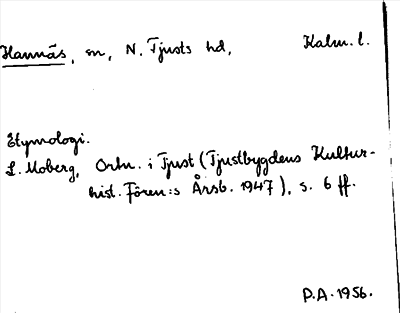 Hannäs, sn, N. Tjusts hd, Kalm. l.
Etymologi.
L. Moberg, Ortn. i Tjust (Tjustbygdens Kultur-
hist. Fören:s Årsb. 1947), s. 6 ff.
P.A. 1956.